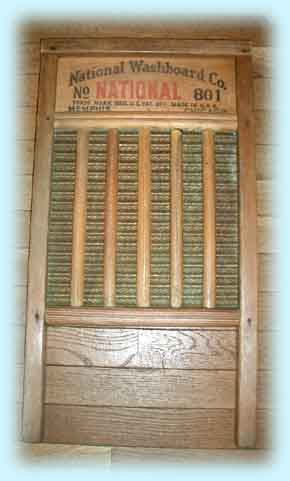 National Washboard Co.
No NATIONAL 801
TRADE MARK REG. U.S. PAT. OFF. MADE IN U.S.A.
MEMPHIS CHICAGO